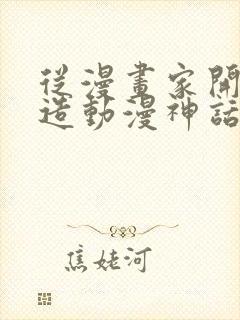 從漫畫家開
造動漫神話
焦姥河